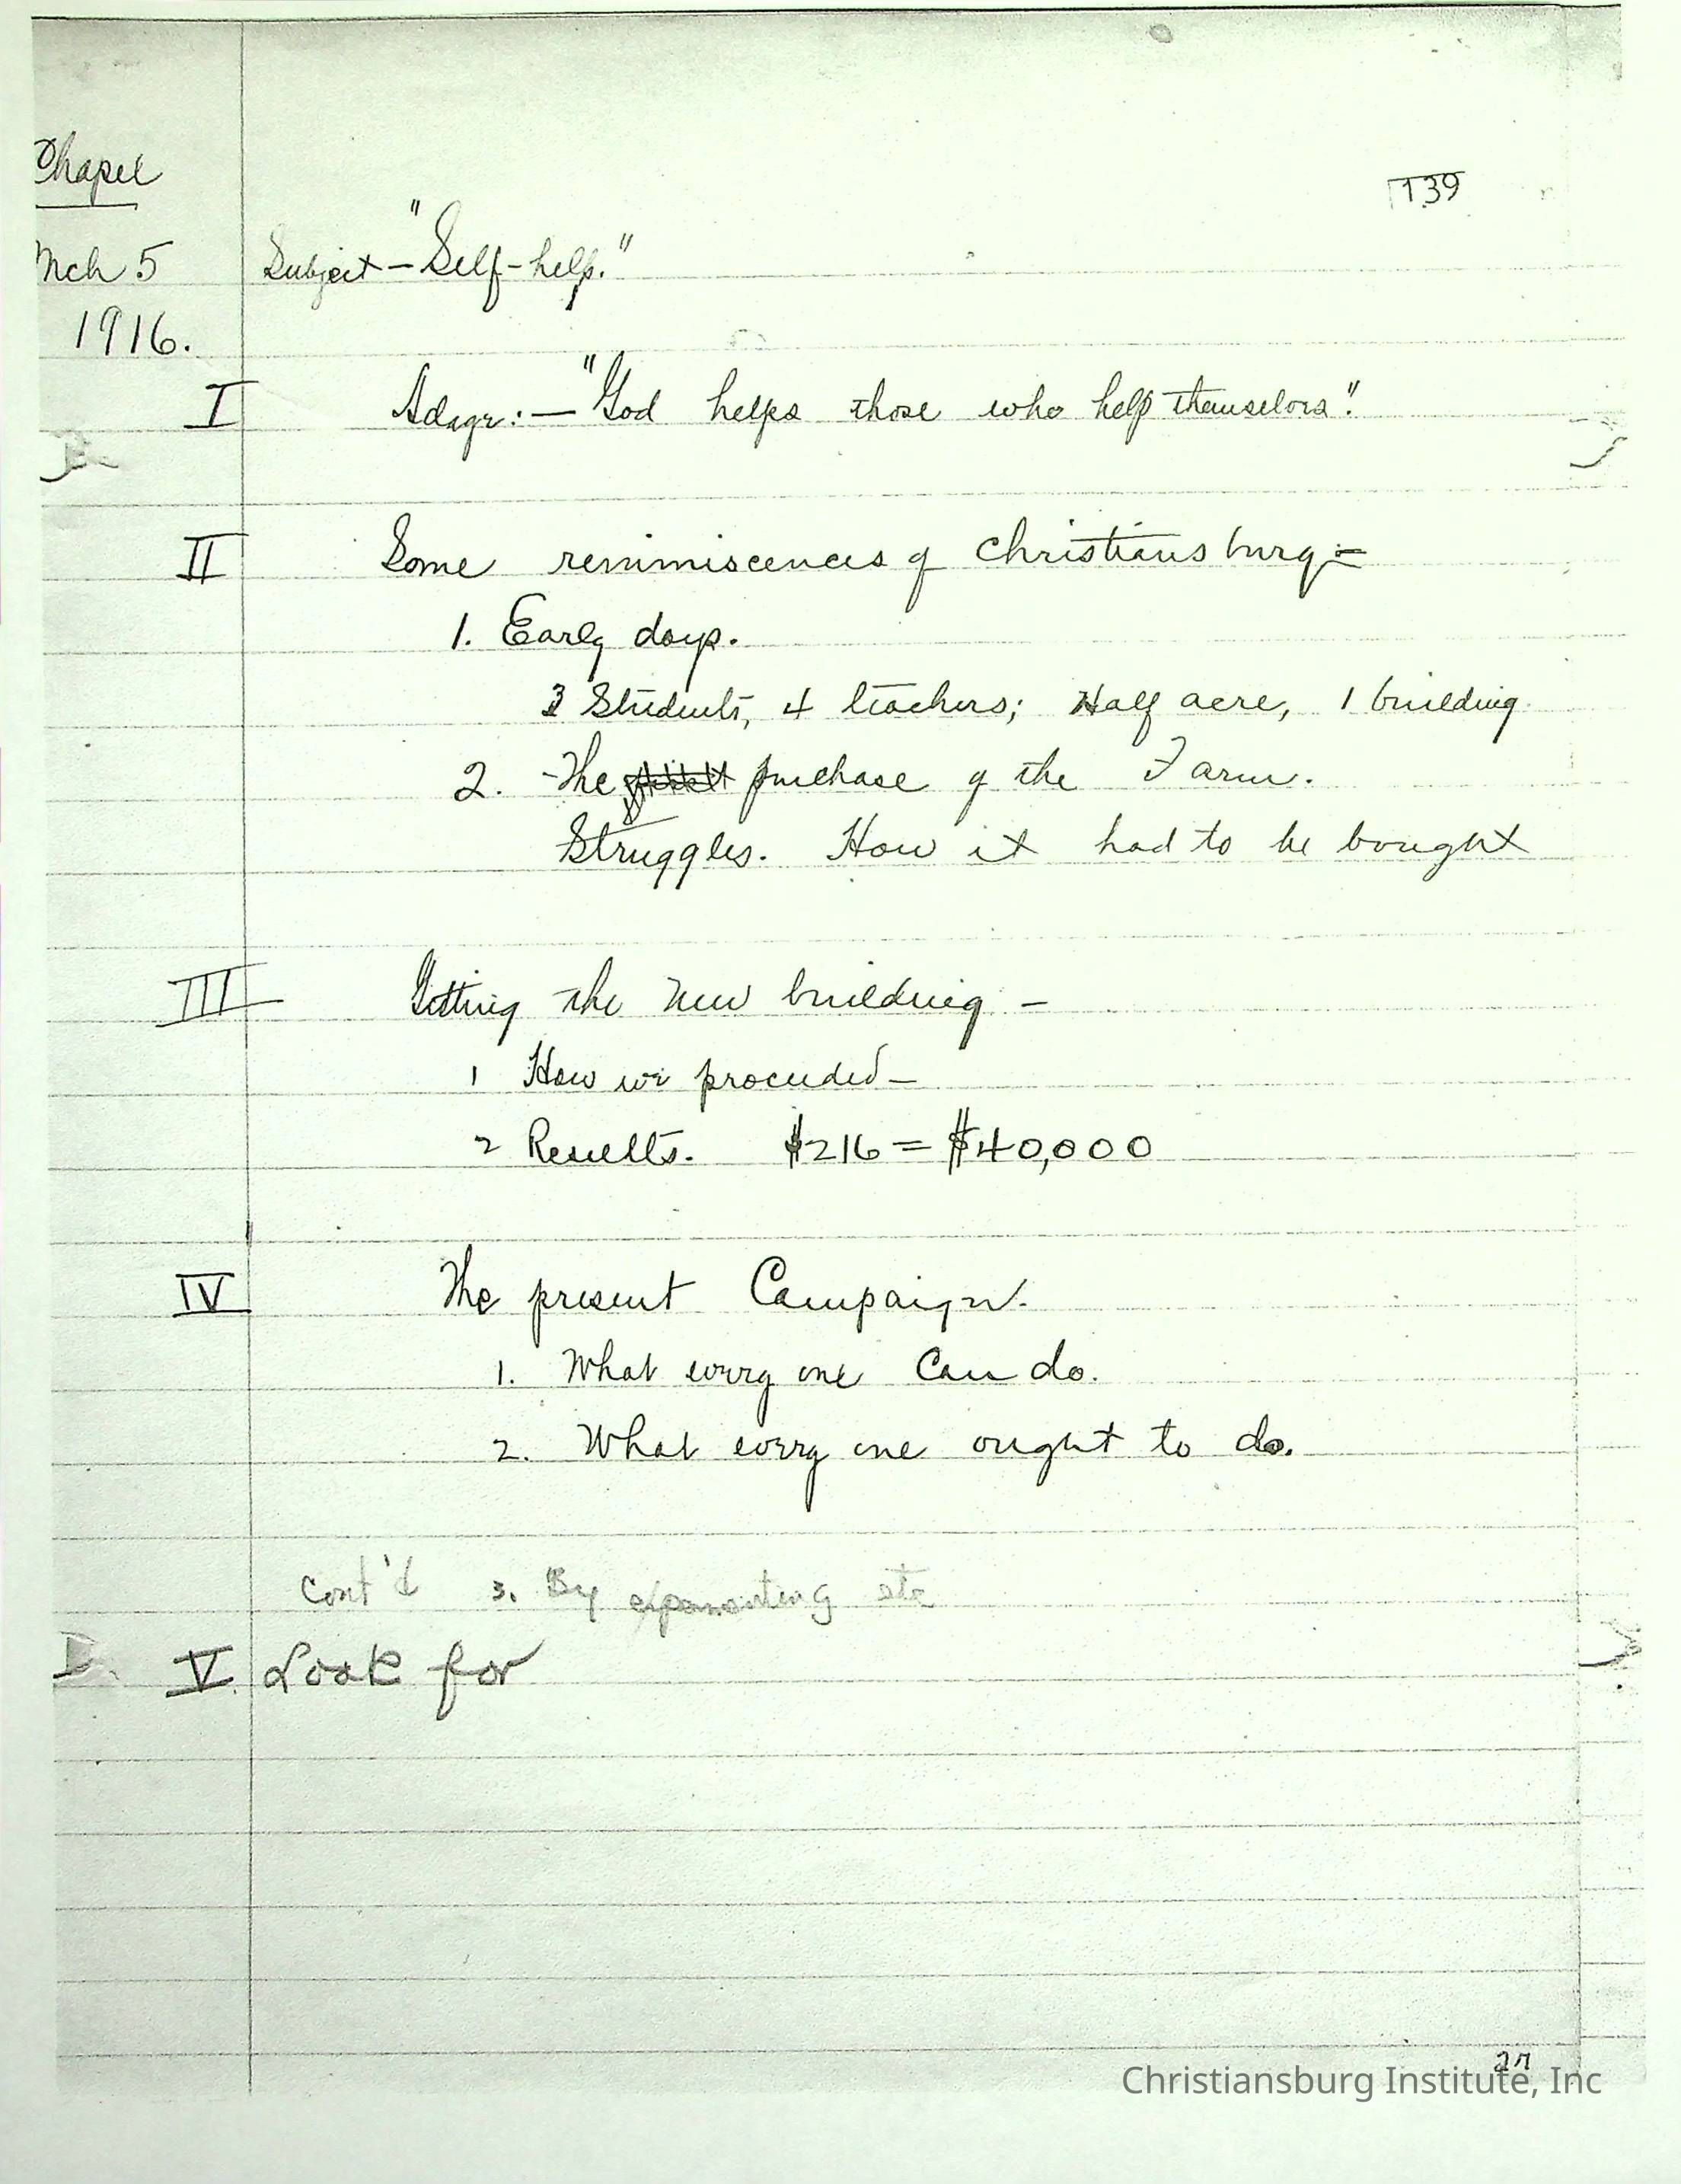 Chapel
139
Mch 5 Subject - "Self-help."
1916.
I Adage: - "God helps those who help themselves".
II Some remimiscences of Christiansburg: -
1. Early days.
3 Students, 4 teachers; Half acre, 1 building
2. The purchase of the Farm.
Struggles. How it had to be bought
III Getting the new building -
1 How we proceeded -
2 Results. $216 = $40,000
IV The present Campaign.
1. What every one Can do.
2. What every one ought to do.
Cont'd 3. By etc
V. Look for
27
Christiansburg Institute, Inc